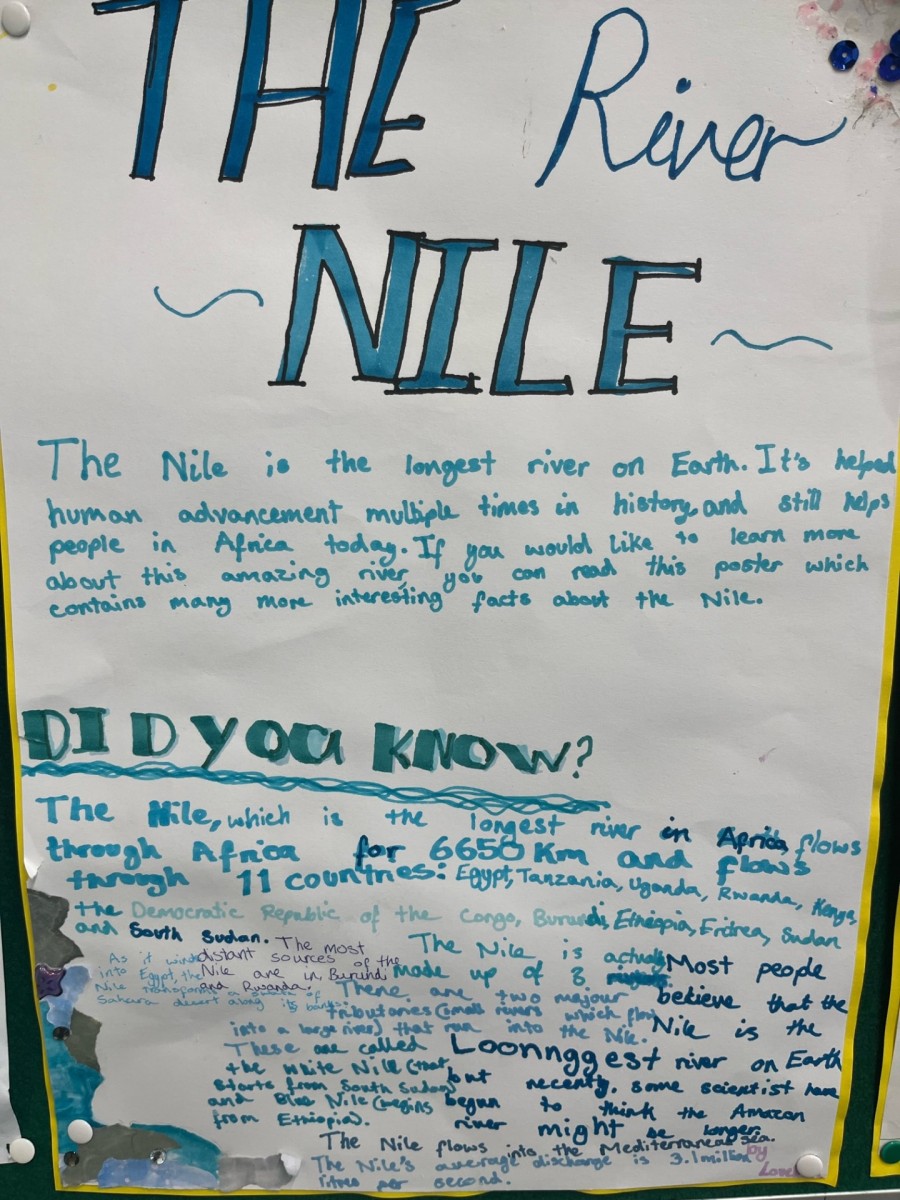 THE River
NILE
The Nile is the longest river on Earth. It's helped
human advancement multiple times in history, and still helps
people in Africa today. If you would like to learn more
about this amazing river, you can read this poster which
contains many more interesting facts about the Nile.
DID YOU KNOW?
The Nile, which is the longest river in Africa, flows
through Africa for 6650 Km and flows
through 11 countries: Egypt, Tanzania, Uganda, Rwanda, Kenya,
the Democratic Republic of the Congo, Burundi, Ethiopia, Eritrea, Sudan
and South Sudan.
The most
distant sources of the
Nile are in Burundi
and Rwanda.
As it winds
into Egypt, the
Nile transforms a
Sahara desert along its banks.
The Nile is actually
made up of 3
There are two majour
tributaries (small rivers which flow
into a large river) that run into the Nile.
These are called
the White Nile (that
starts from South Sudan)
and Blue Nile (begins
from Ethiopia).
Most people
believe that the
Nile is the
Loonnggest river on Earth
but recently, some scientist have
begun to think the Amazon
river might be longer.
The Nile flows into the Mediterranean sea.
The Nile's average discharge is 3.1 million
litres per second.
by